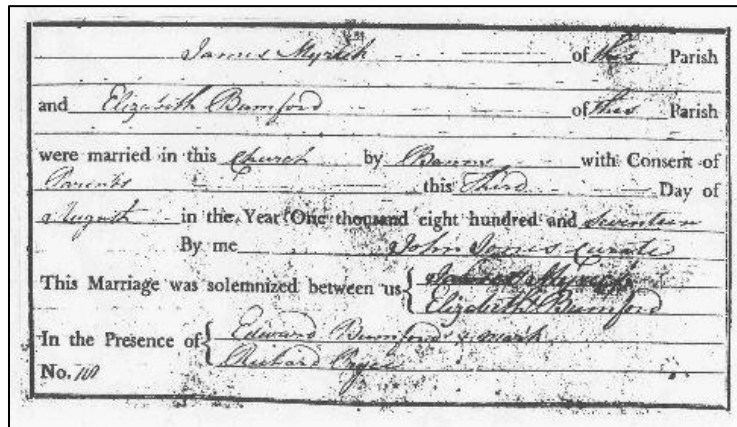 James of this Parish
and Elizabeth Bumford of this Parish
were married in this Church by Banns with Consent of
Parents this Third Day of
August in the Year One thousand eight hundred and seventeen
By me John Jones Curate
This Marriage was solemnized between us { James
Elizabeth Bumford
In the Presence of { Edward Bumford x mark
Richard Pryce
No.